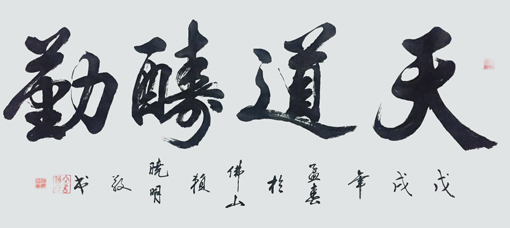 天道酬勤
戊戌年孟春於佛山顏曉明敬书